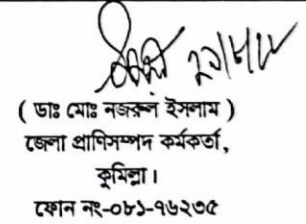 ( ডাঃ মোঃ নজরুল ইসলাম )
জেলা প্রাণিসম্পদ কর্মকর্তা,
কুমিল্লা।
ফোন নং-০৮১-৭৬২৩৫